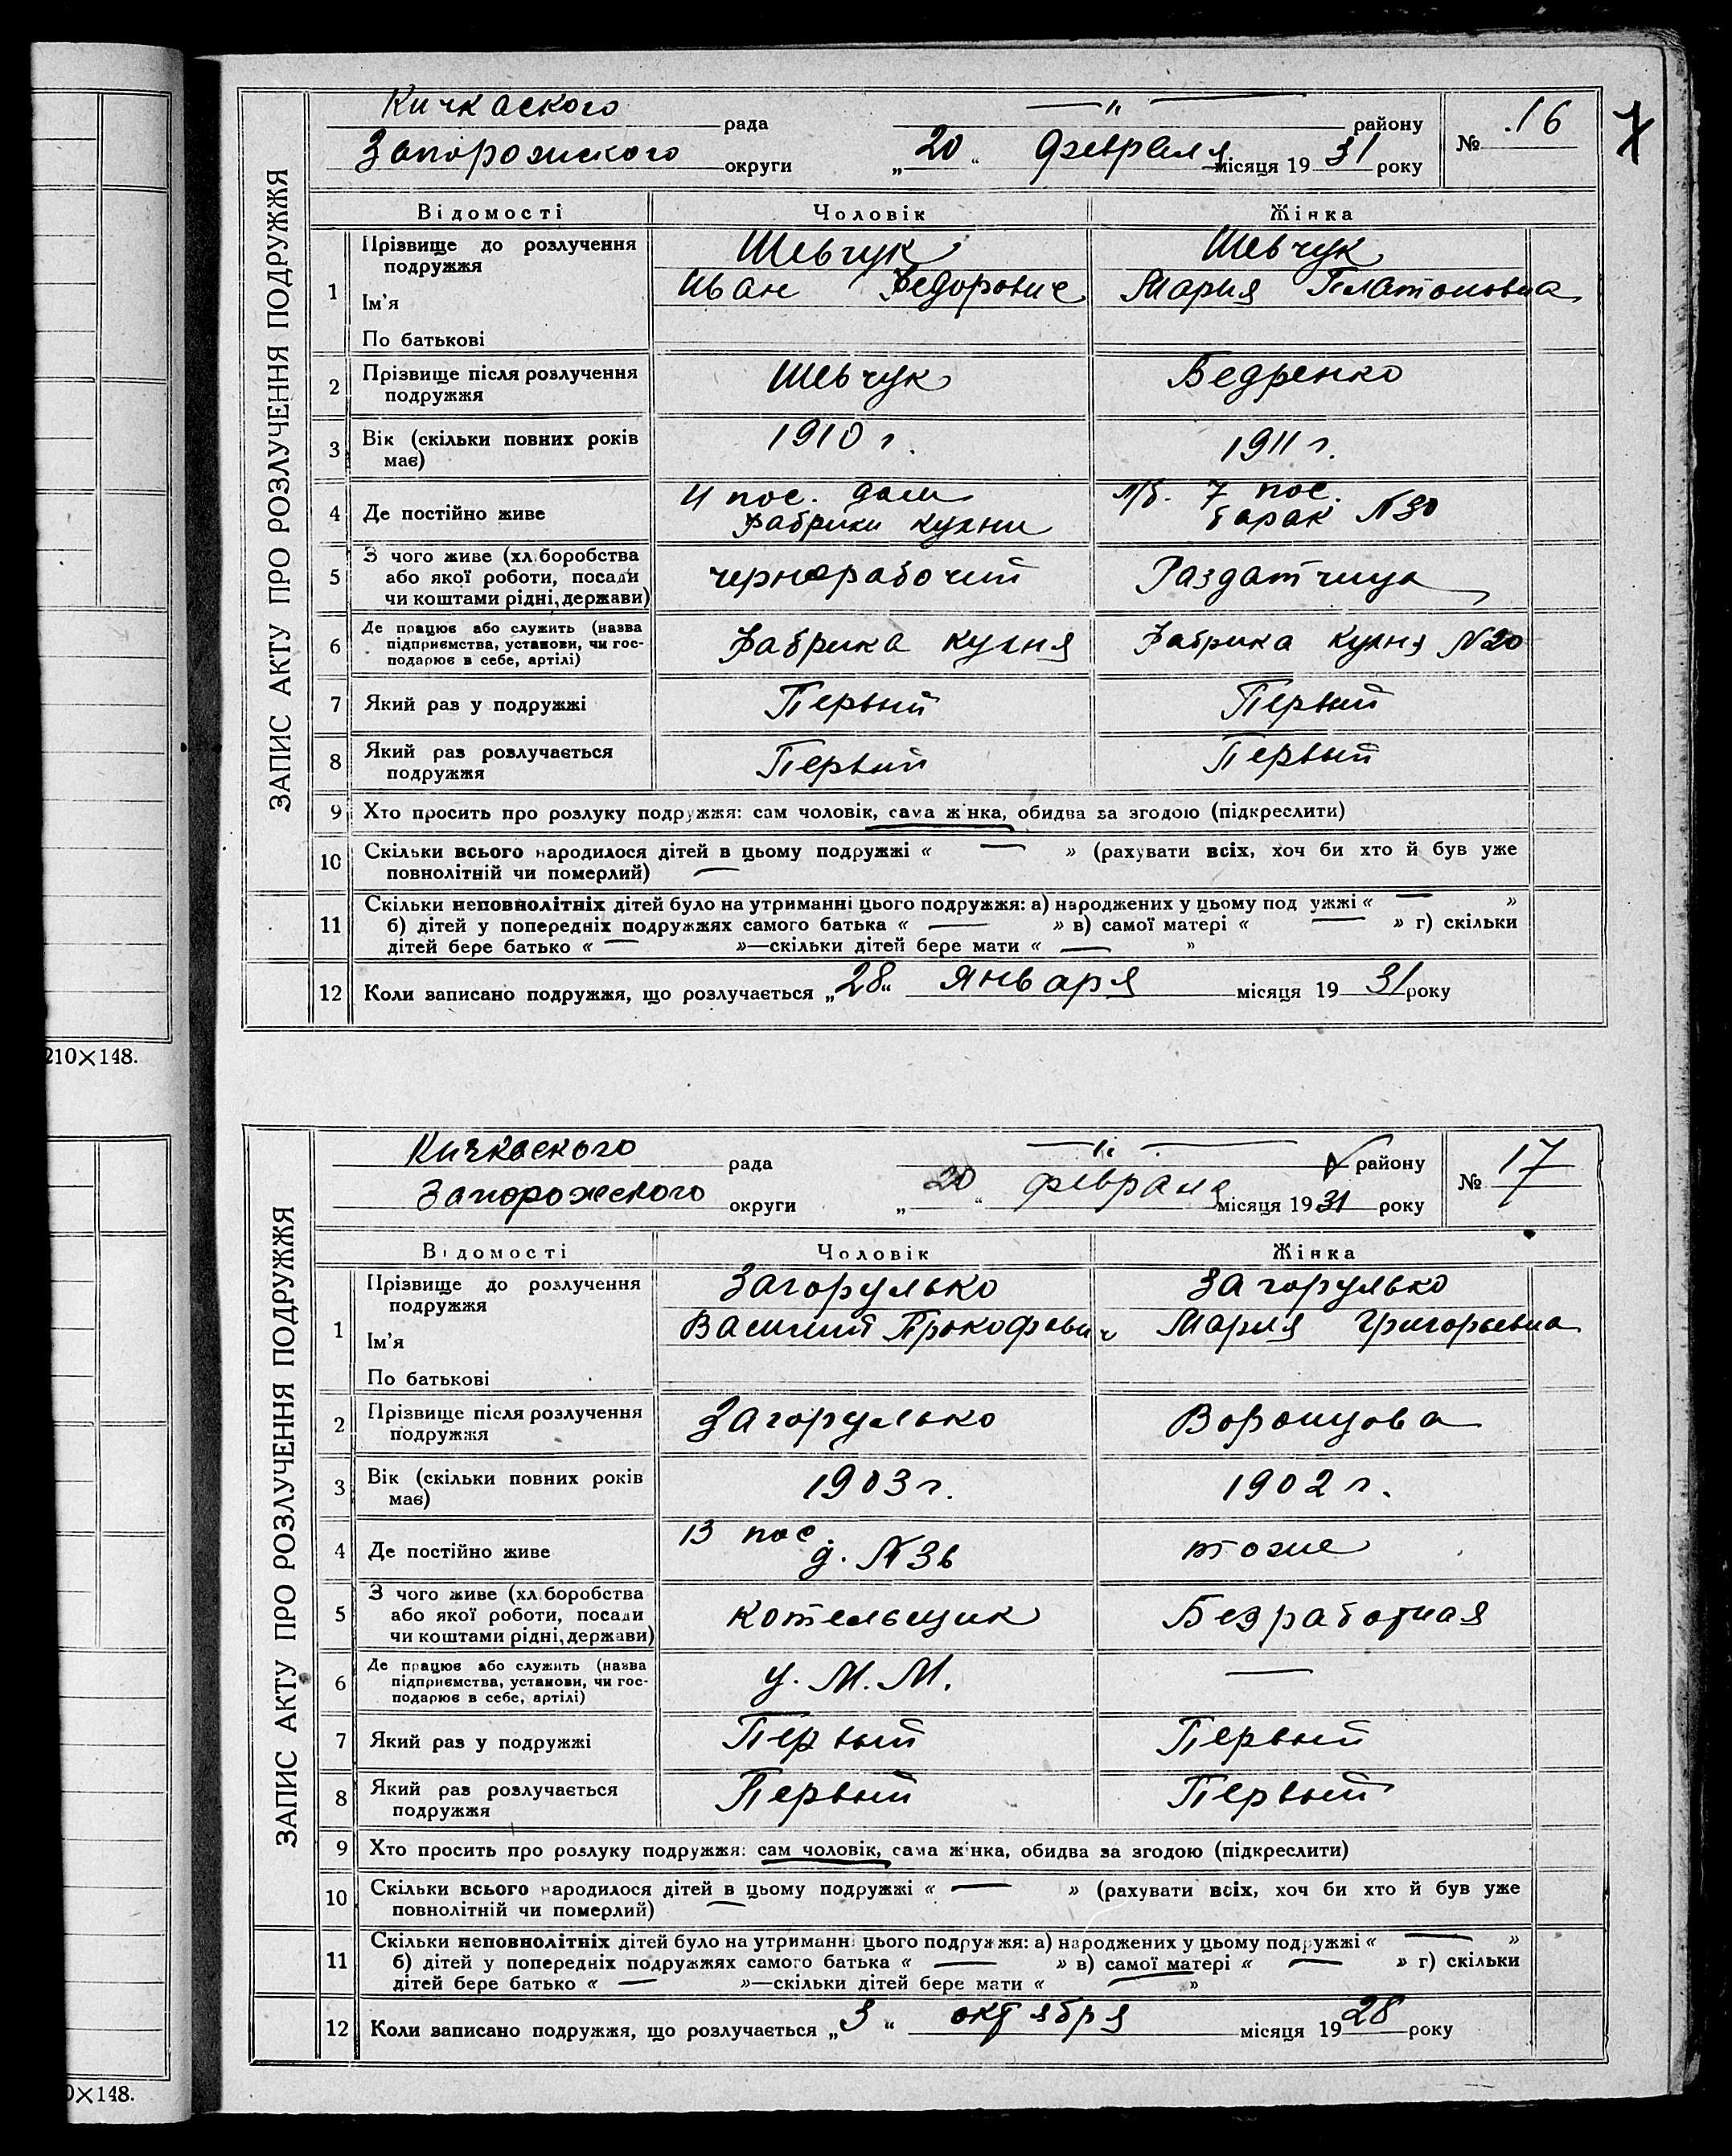 ЗАПИС АКТУ ПРО РОЗЛУЧЕННЯ ПОДРУЖЖЯ
Кичкаского рада — " — району № 16
Запорожского округи „20“ февраля місяця 1931 року
Відомості Чоловік Жінка
1 Прізвище до розлучення подружжя Шевчук Шевчук
Ім'я Иван Федорович Мария Платоновна
По батькові
2 Прізвище після розлучення подружжя Шевчук Бедренко
3 Вік (скільки повних років має) 1910 г. 1911 г.
4 Де постійно живе 4 пос. дом Фабрики кухни п/б. 7 пос. барак N30
5 З чого живе (хл.боробства або якої роботи, посади чи коштами рідні, держави) чернорабочий Раздатчица
6 Де працює або служить (назва підприємства, установи, чи господарює в себе, артілі) Фабрика кухня Фабрика кухня N20
7 Який раз у подружжі Первый Первый
8 Який раз розлучається подружжя Первый Первый
9 Хто просить про розлуку подружжя: сам чоловік, сама жінка, обидва за згодою (підкреслити)
10 Скільки всього народилося дітей в цьому подружжі « — » (рахувати всіх, хоч би хто й був уже
повнолітній чи померлий) —
11 Скільки неповнолітніх дітей було на утриманні цього подружжя: а) народжених у цьому под ужжі « — »
б) дітей у попередніх подружжях самого батька « — » в) самої матері « — » г) скільки
дітей бере батько « — »—скільки дітей бере мати « — »
12 Коли записано подружжя, що розлучається „28“ января місяця 1931 року
210×148.
ЗАПИС АКТУ ПРО РОЗЛУЧЕННЯ ПОДРУЖЖЯ
Кичкаского рада — " — району № 17
Запорожского округи „20“ февраля місяця 1931 року
Відомості Чоловік Жінка
1 Прізвище до розлучення подружжя Загорулько Загорулько
Ім'я Василий Прокофьевич Мария Григорьевна
По батькові
2 Прізвище після розлучення подружжя Загорулько Воронцова
3 Вік (скільки повних років має) 1903 г. 1902 г.
4 Де постійно живе 13 пос. д. N36 тоже
5 З чого живе (хл.боробства або якої роботи, посади чи коштами рідні, держави) котельщик Безработная
6 Де працює або служить (назва підприємства, установи, чи господарює в себе, артілі) У. М. М. —
7 Який раз у подружжі Первый Первый
8 Який раз розлучається подружжя Первый Первый
9 Хто просить про розлуку подружжя: сам чоловік, сама жінка, обидва за згодою (підкреслити)
10 Скільки всього народилося дітей в цьому подружжі « — » (рахувати всіх, хоч би хто й був уже
повнолітній чи померлий) —
11 Скільки неповнолітніх дітей було на утриманні цього подружжя: а) народжених у цьому подружжі « — »
б) дітей у попередніх подружжях самого батька « — » в) самої матері « — » г) скільки
дітей бере батько « — »—скільки дітей бере мати « — »
12 Коли записано подружжя, що розлучається „3“ октября місяця 1928 року
0×148.